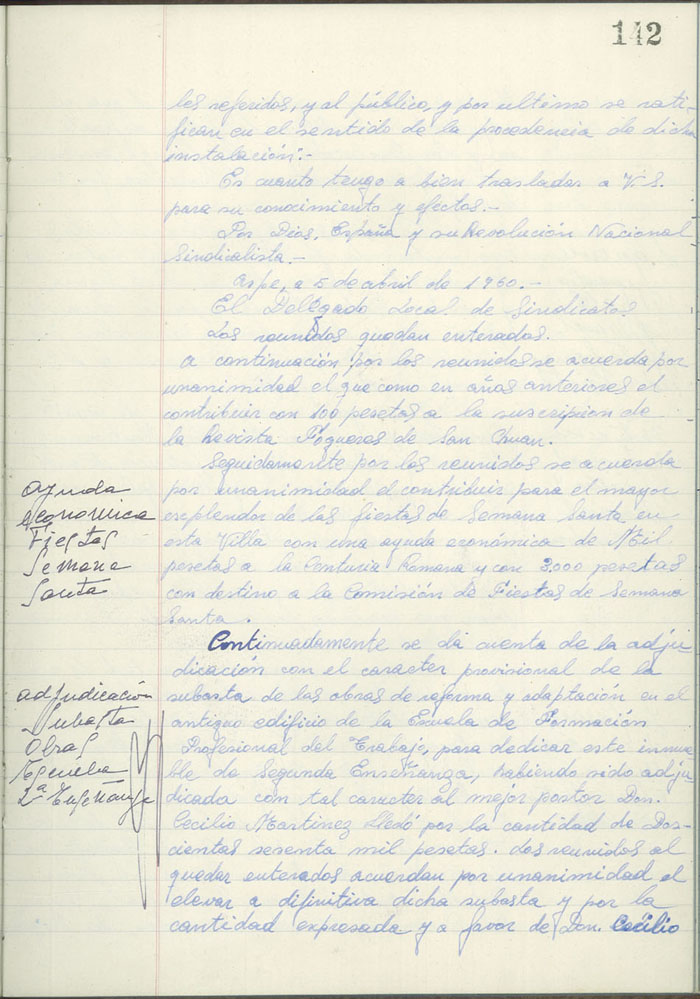 142
les referidos, y al público, y por ultimo se rati-
fican en el sentido de la procedencia de dicha
instalación.-
Es cuanto tengo a bien trasladar a V.S.
para su conocimiento y efectos.-
Por Dios, España y su Revolución Nacional
Sindicalista.-
Aspe, a 5 de abril de 1960.-
El Delegado Local de Sindicatos
Los reunidos quedan enterados.
A continuación por los reunidos se acuerda por
unanimidad el que como en años anteriores el
contribuir con 100 pesetas a la suscripcion de
la Revista Fogueres de San Chuan.
Seguidamente por los reunidos se acuerda
por unanimidad el contribuir para el mayor
explendor de las fiestas de Semana Santa en
esta Villa con una ayuda económica de Mil
pesetas a la Centuria Romana y con 3.000 pesetas
con destino a la Comisión de Fiestas de Semana
Santa.
Ayuda
económica
Fiestas
Semana
Santa
Continuadamente se da cuenta de la adju-
dicación con el caracter provisional de la
subasta de las obras de reforma y adaptación en el
antiguo edificio de la Escuela de Formación
Profesional del Trabajo, para dedicar este inmue-
ble de Segunda Enseñanza, habiendo sido adju-
dicada con tal caracter al mejor postor Don.
Cecilio Martinez Lledó por la cantidad de Dos-
cientas sesenta mil pesetas. Los reunidos al
quedar enterados acuerdan por unanimidad el
elevar a difinitiva dicha subasta y por la
cantidad expresada y a favor de Don. Cecilio
adjudicación
Subasta
Obras
Escuela
2ª Enseñanza